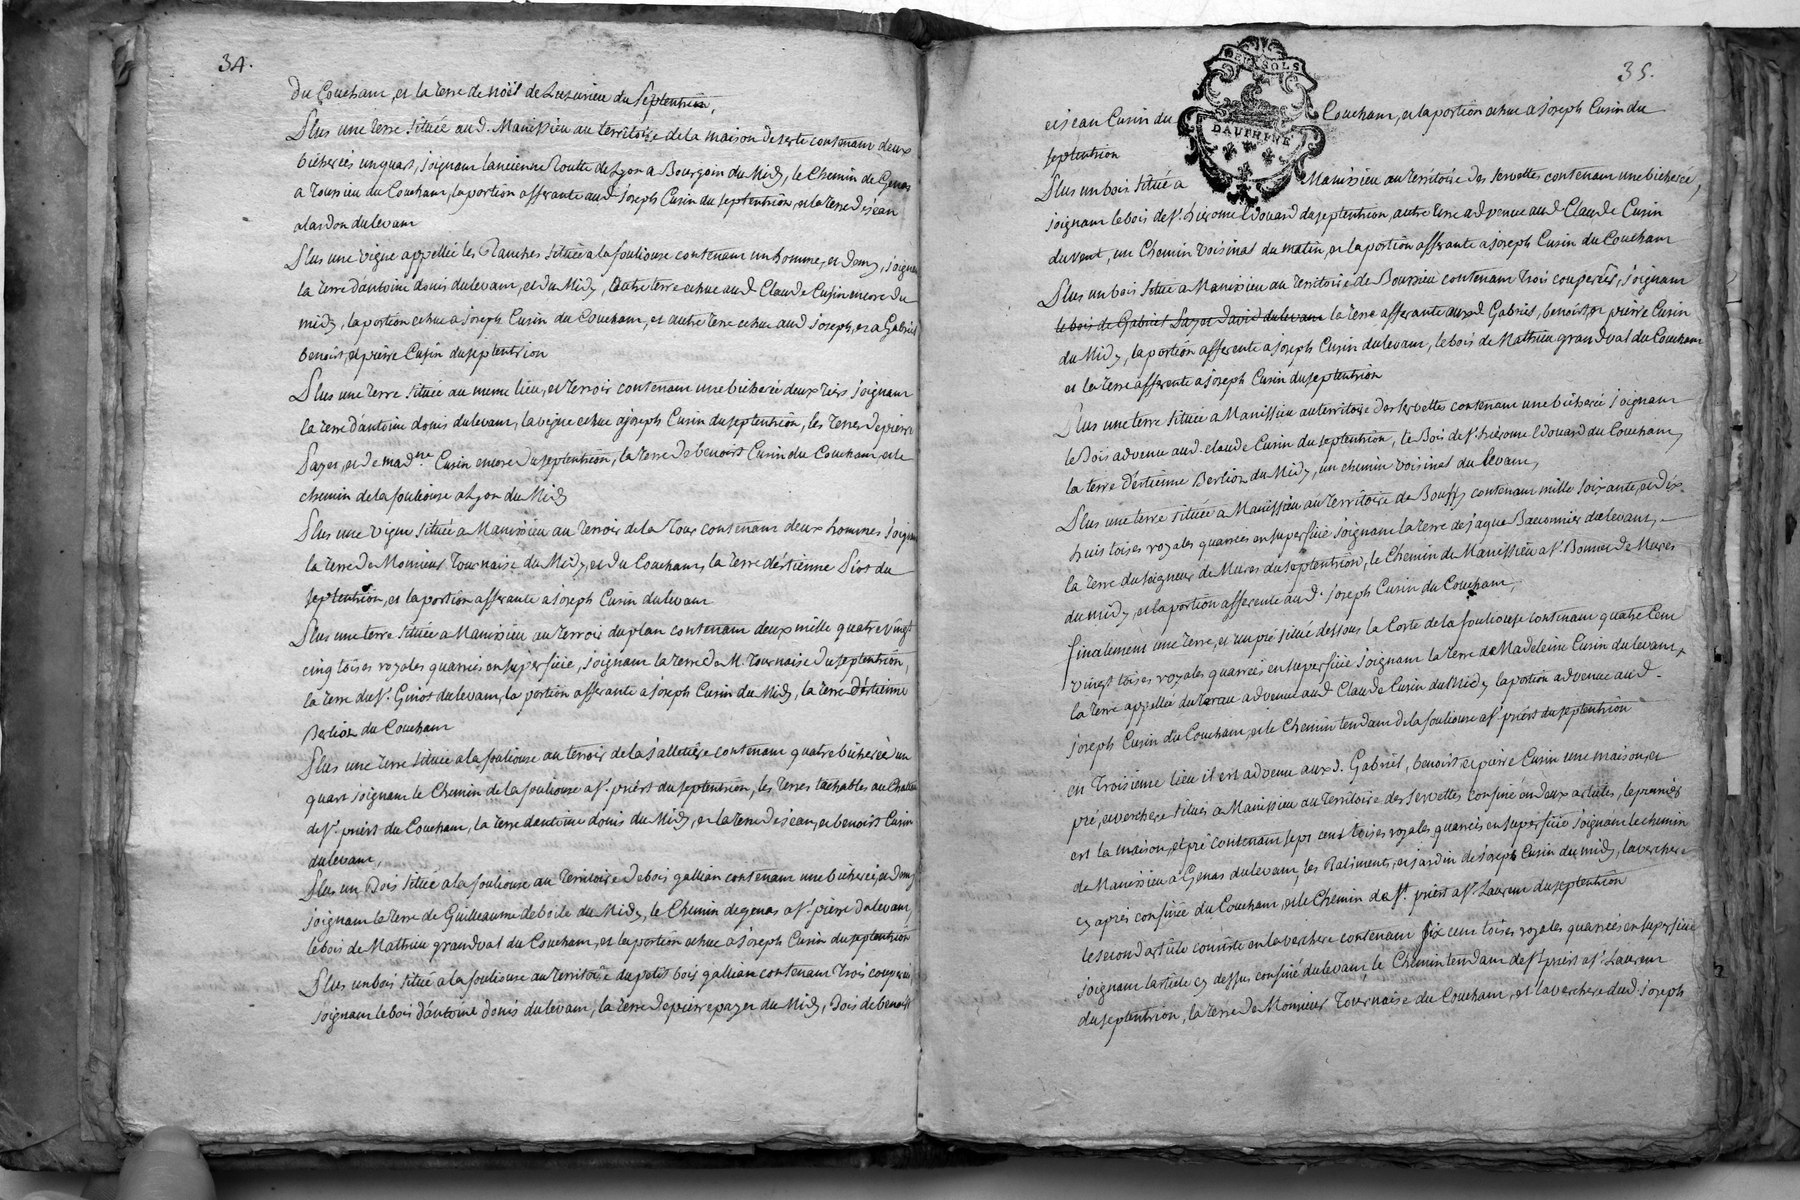 34.
du Couchant, et la terre de noël de Luzurieu du septentrion,
Plus une terre située aud. Manissieu au territoire de la maison deserte contenant deux
bicherées un quart, joignant lancienne Route de Lyon a Bourgoin du Midy, le Chemin de Genas
a Toussieu du Couchant, la portion afferante aud Joseph Cusin du septentrion, et la terre de jean
alardon du levant
Plus une vigne appellée les Planches située a la fouliouse contenant un homme, et demy, joignant
la terre d'antoine donis du levant, et du Midy, l'autre terre echue aud Claude Cusin encore du
midy, la portion echue a joseph Cusin du Couchant, et autre terre echue aud joseph, et a Gabriel
benoist, et pierre Cusin du septentrion
Plus une terre située au meme lieu, et terroir contenant une bicherée deux tiers joignant
la terre d'antoine donis du levant, la vigne echue a joseph Cusin du septentrion, les terres de pierre
Payet, et de mad.ne Cusin encore du septentrion, la terre de benoist Cusin du Couchant, et le
chemin de la fouliouse a Lyon du Midy
Plus une vigne située a Manissieu au terroir de la Tour contenant deux hommes joignant
la terre de Monsieur Tournaise du Midy, et du Couchant, la terre d'estienne Piot du
septentrion, et la portion afferante a joseph Cusin du levant
Plus une terre située a Manissieu au terroir du plan contenant deux mille quatre vingt
cinq toises royales quarrées en superficie, joignant la terre de M. Tournaise du septentrion,
la terre du sr. Ginot du levant, la portion afferante a joseph Cusin du Midy, la terre d'estienne
Berlioz du Couchant
Plus une terre située a la fouliouse au terroir de la jalletiere contenant quatre bicherée un
quart joignant le Chemin de la fouliouse a st. priest du septentrion, les terres tachables au Chateau
de st. priest du Couchant, la terre dantoine donis du Midy, et la terre de jean, et benoist Cusin
du levant,
Plus un Bois située a la fouliouse au Territoire de bois gallian contenant une bicherée, et demy
joignant la terre de Guilleaume deboile du Midy, le Chemin de genas a st. pierre du levant,
le bois de Mathieu grandval du Couchant, et la portion echue a joseph Cusin du septentrion
Plus un bois situé a la fouliouse au territoire du petit bois gallian contenant trois couperées,
joignant le bois d'antoine donis du levant, la terre de pierre payet du Midy, Bois de benoist
35.
DEUX SOLS
DAUPHINÉ
et jean Cusin du Couchant, et la portion echue a joseph Cusin du
septentrion
Plus un bois situé a Manissieu au territoire des servettes contenant une bicherée,
joignant le bois de sr. hierome Edouard du septentrion, autre terre advenue aud Claude Cusin
du vent, un Chemin voisinal du matin, et la portion afferante a joseph Cusin du Couchant
Plus un bois situé a Manissieu au territoire de Boussieu contenant trois couperées, joignant
le bois de Gabriel Payet David du levant la terre afferante auxd Gabriel, benoist, et pierre Cusin
du Midy, la portion afferente a joseph Cusin du levant, le bois de Mathieu grandval du Couchant
et la terre afferente a joseph Cusin du septentrion
Plus une terre située a Manissieu au territoire des servettes contenant une bicherée joignant
le Bois advenu aud. claude Cusin du septentrion, le Bois de sr. hierome Edouard du Couchant,
la terre d'estienne Berlion du Midy, un chemin voisinal du levant,
Plus une terre située a Manissieu au territoire de Bouffy contenant mille soixante, et dix
huit toises royales quarrées en superficie joignant la terre de jaque Baconnier du levant,
la terre du seigneur de Mures du septentrion, le Chemin de Manissieu a st. Bonnet de Mures
du midy, et la portion afferente aud. joseph Cusin du Couchant,
finalement une terre, et un pré situé dessous la Coste de la fouliouse contenant quatre Cent
vingt toises royales quarrées en superficie joignant la terre de Madeleine Cusin du levant,
la terre appellée du terau advenue aud Claude Cusin du Midy la portion advenue aud.
joseph Cusin du Couchant, et le Chemin tendant de la fouliouse a st. priest du septentrion
en Troisieme lieu il est advenu auxd. Gabriel, benoist et pierre Cusin une maison, et
pré, et verchere situés a Manissieu au territoire des servettes confiné en deux articles, le premier
est la maison, et pré contenant sept cent toises royales quarrées en superficie joignant le chemin
de Manissieu a Genas du levant, les Batiments, et jardin de joseph Cusin du midy, la verchere
cy apres confinée du Couchant, et le Chemin de st. priest a st. Laurent du septentrion
le second article consiste en la verchere contenant six cent toises royales quarrées en superficie
joignant larticle cy dessus confiné du levant, le Chemin tendant de st. priest a st. Laurent
du septentrion, la terre de Monsieur Tournaise du Couchant, et la verchere dud joseph